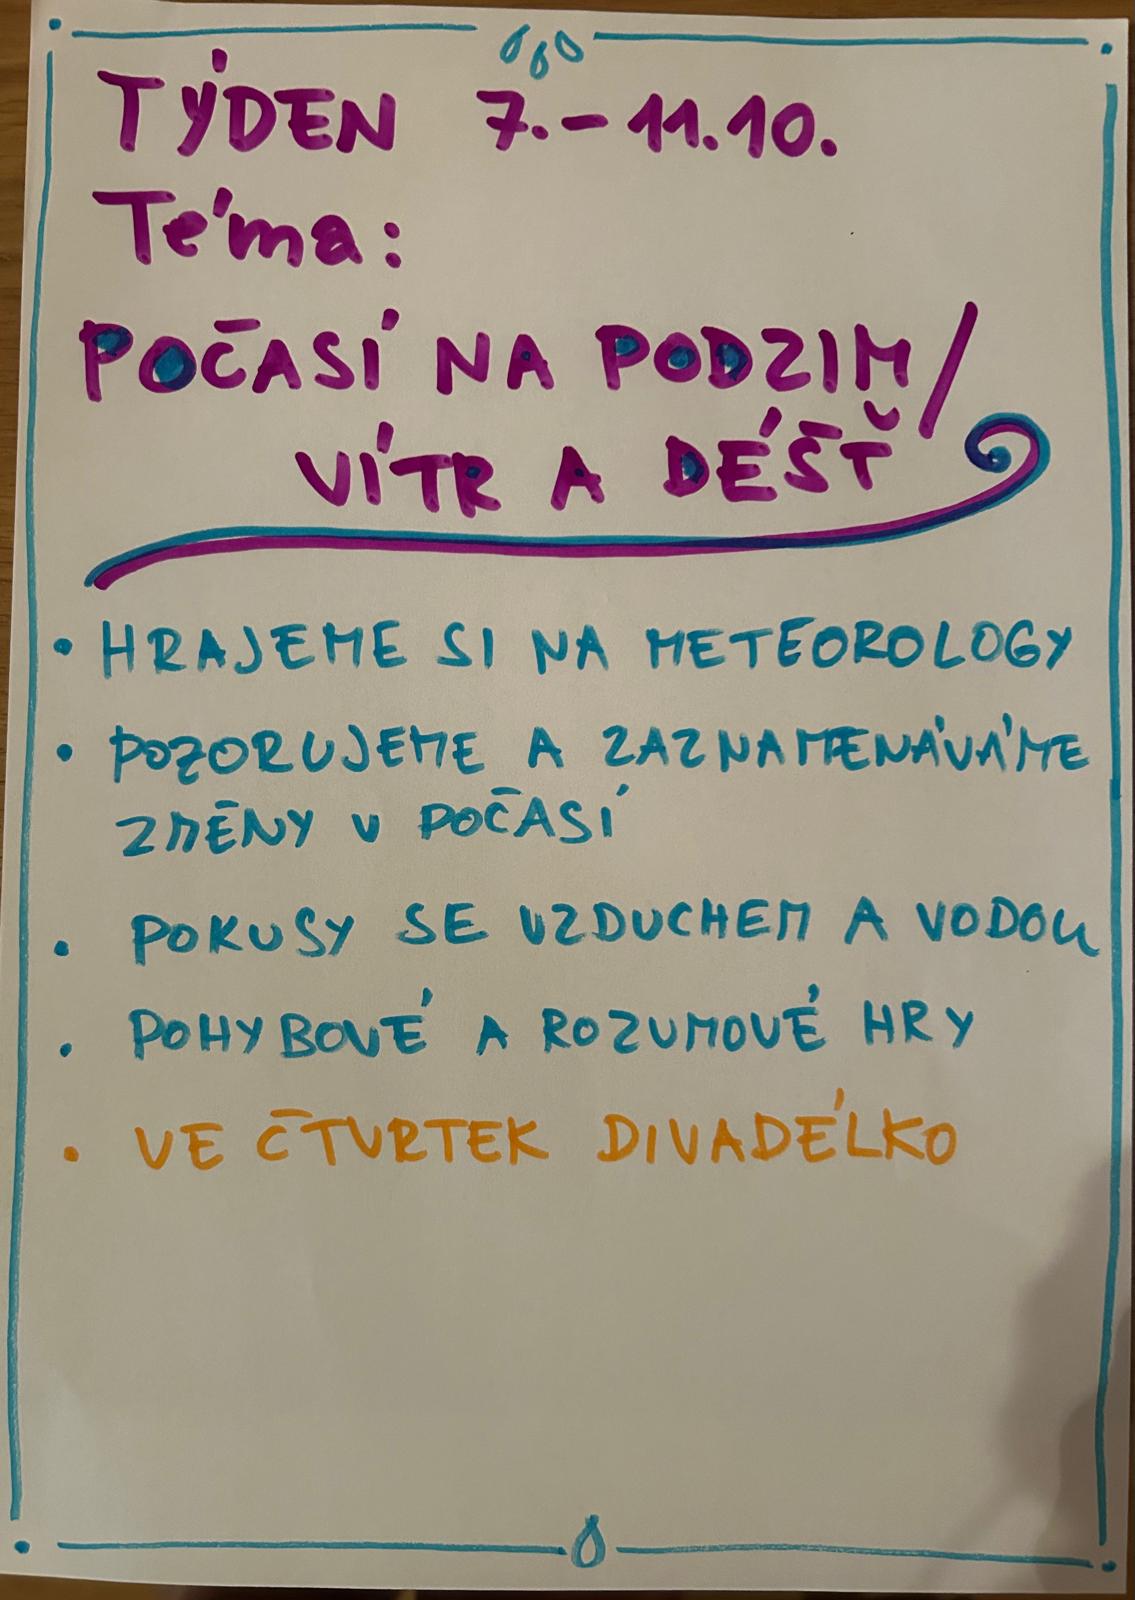 TÝDEN 7.-11.10.
Téma:
POČASÍ NA PODZIM/
VÍTR A DÉŠŤ
• HRAJEME SI NA METEOROLOGY
• POZORUJEME A ZAZNAMENÁVÁME
ZMĚNY V POČASÍ
• POKUSY SE VZDUCHEM A VODOU
• POHYBOVÉ A ROZUMOVÉ HRY
• VE ČTVRTEK DIVADÉLKO